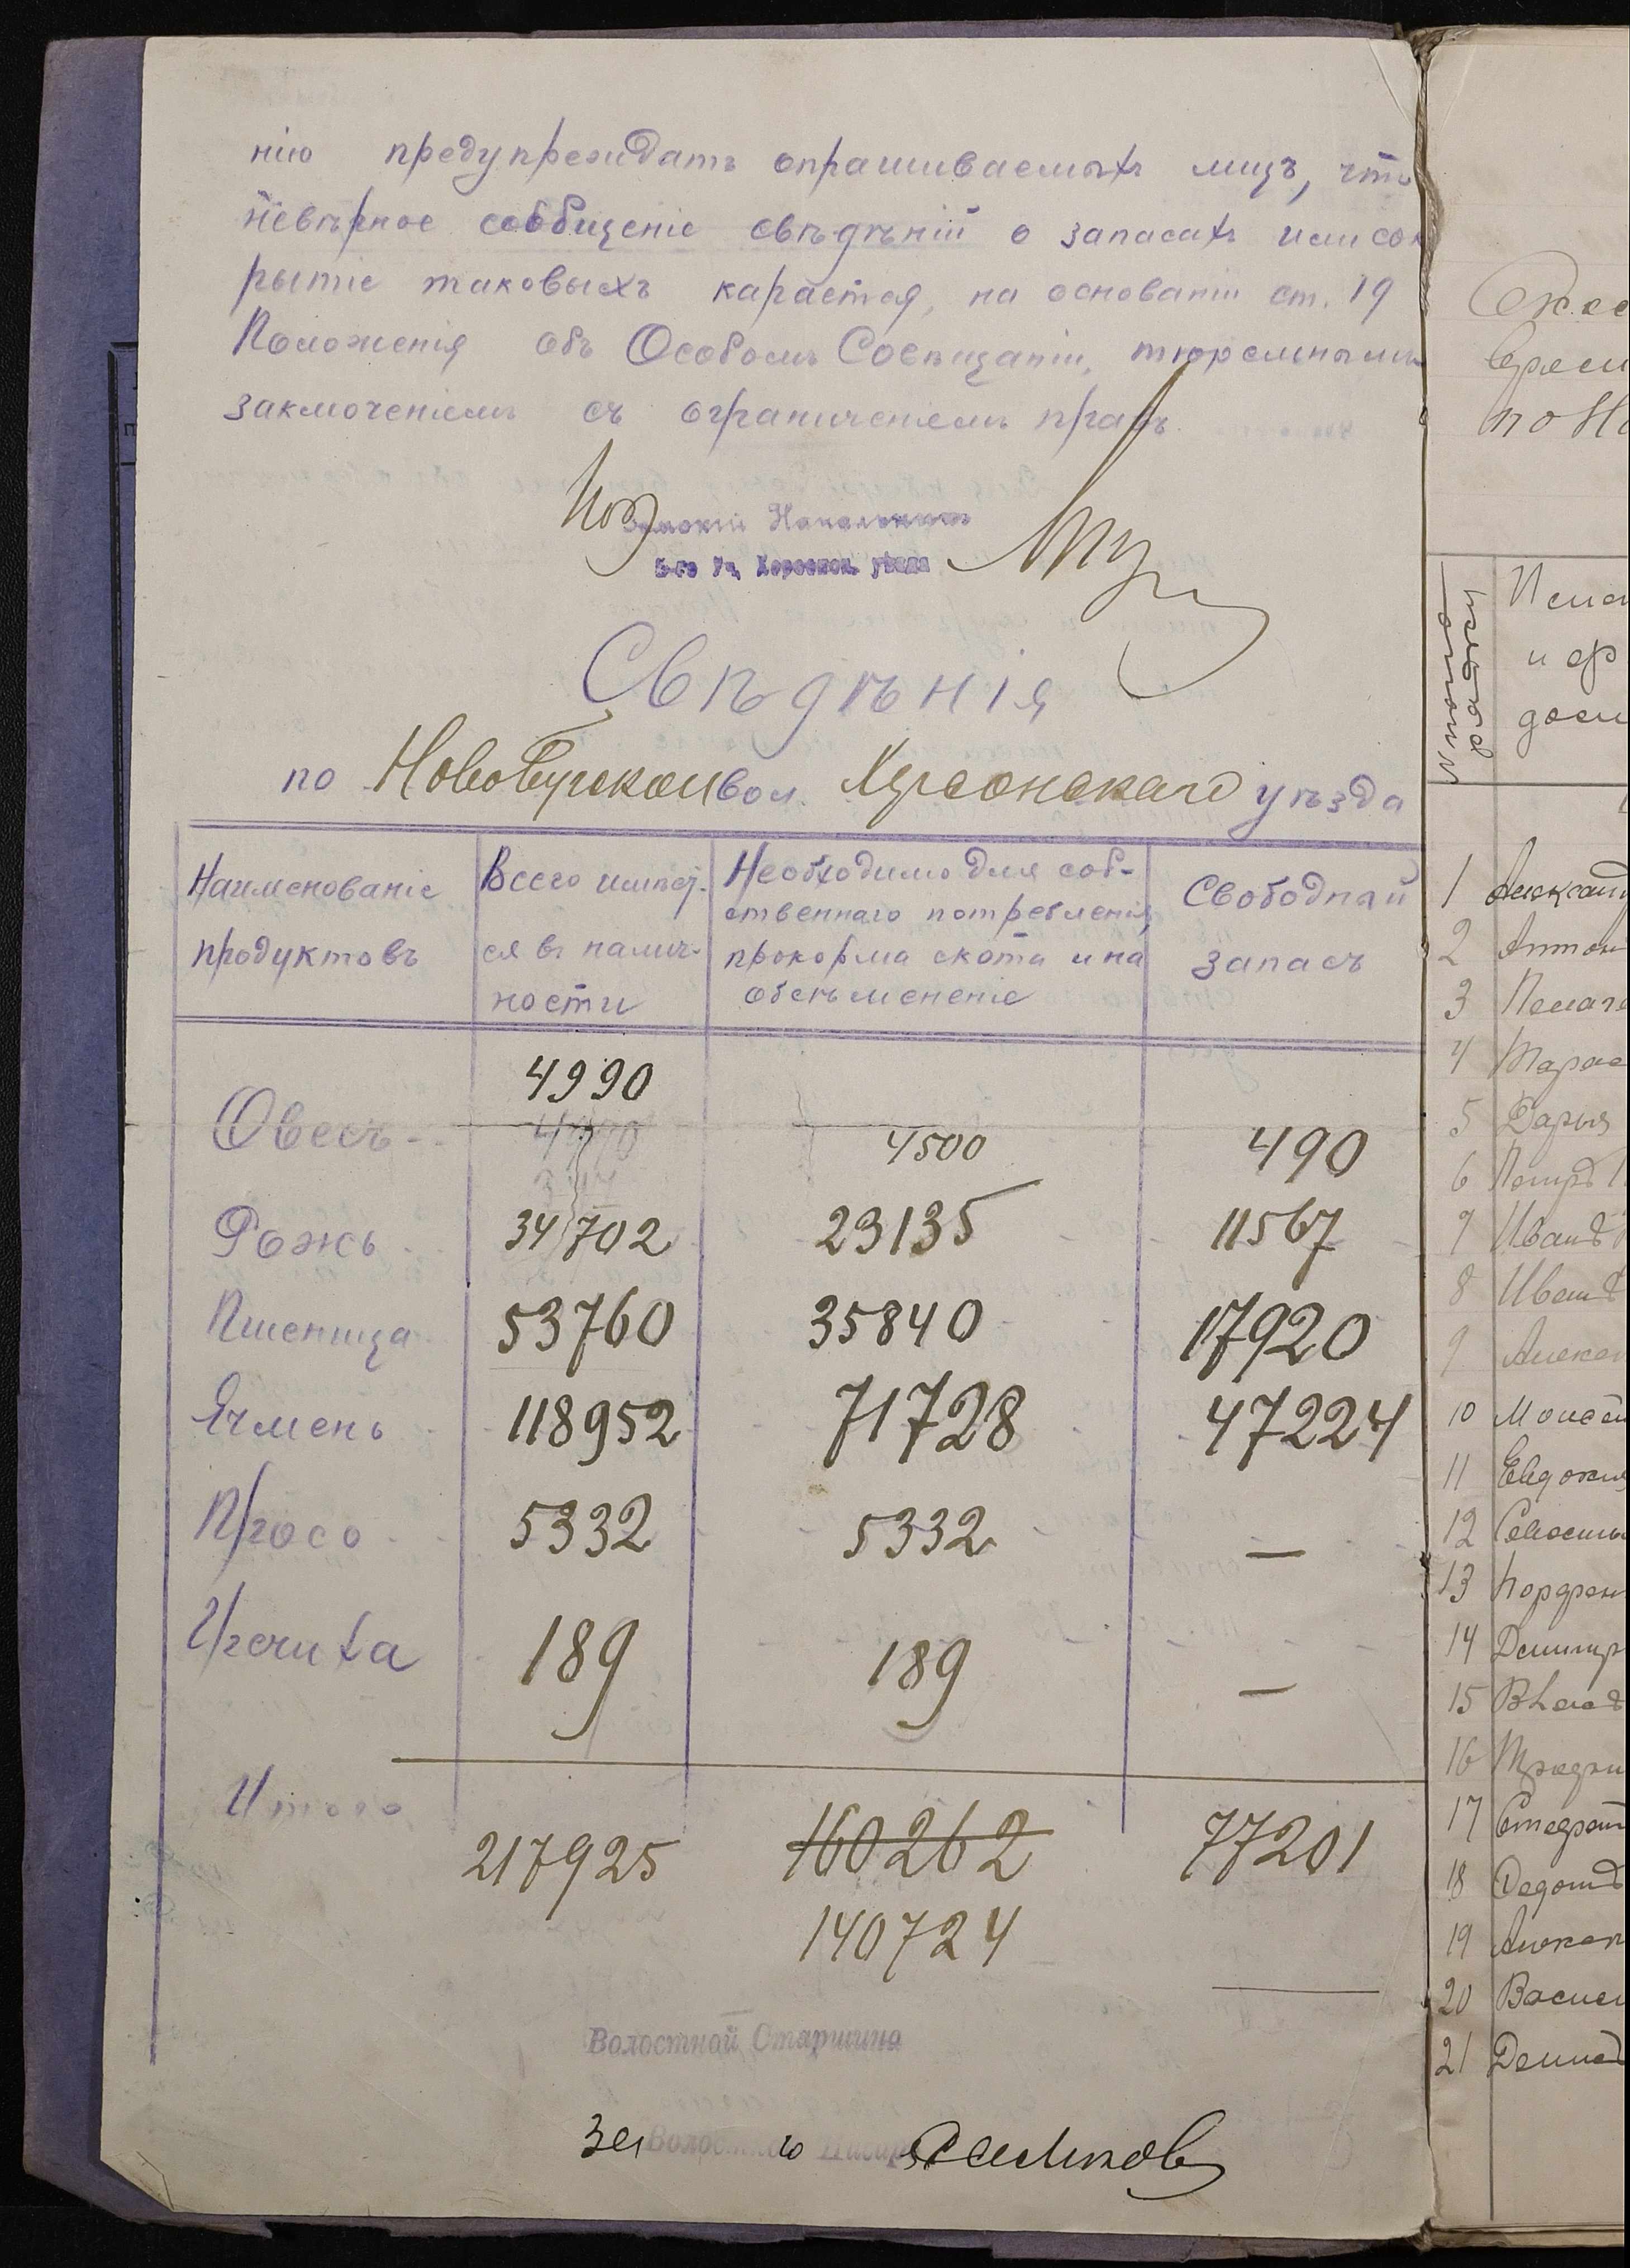 нію предупреждать опрашиваемыхъ лицъ, что
невѣрное сообщеніе свѣдѣній о запасахъ или сок
рытіе таковыхъ карается, на основаніи ст. 19
Положенія объ Особомъ Совѣщаніи, тюремнымъ
заключеніемъ съ ограниченіемъ правъ.
Земскій Начальникъ
5-го Уч. Херсонск. уѣзда
Свѣдѣнія
по Новобугской вол. Херсонскаго уѣзда
Наименованіе продуктовъ
Всего имѣет-
ся въ налич-
ности
Необходимо для соб-
ственнаго потребленія,
прокорма скота и на
обсѣмененіе
Свободный
запасъ
4990
Овесъ 4500 490
Рожь 34702 23135 11567
Пшеница 53760 35840 17920
Ячмень 118952 71728 47224
Просо 5332 5332 —
Гречиха 189 189 —
Итого
217925 160262 77201
140724
Волостной Старшина
За Волостного Писаря
номера
по
и ф
1 Александ
2 Антон
3 Пелаге
4 Тарас
5 Дарья
6 Петръ
7 Иванъ
8 Иванъ
9 Алекса
10 Моисей
11 Евдокия
12 Севасть
13 Порфен
14 Димитр
15 Власъ
16
17
18 Федотъ
19 Алексан
20 Васил
21 Демид